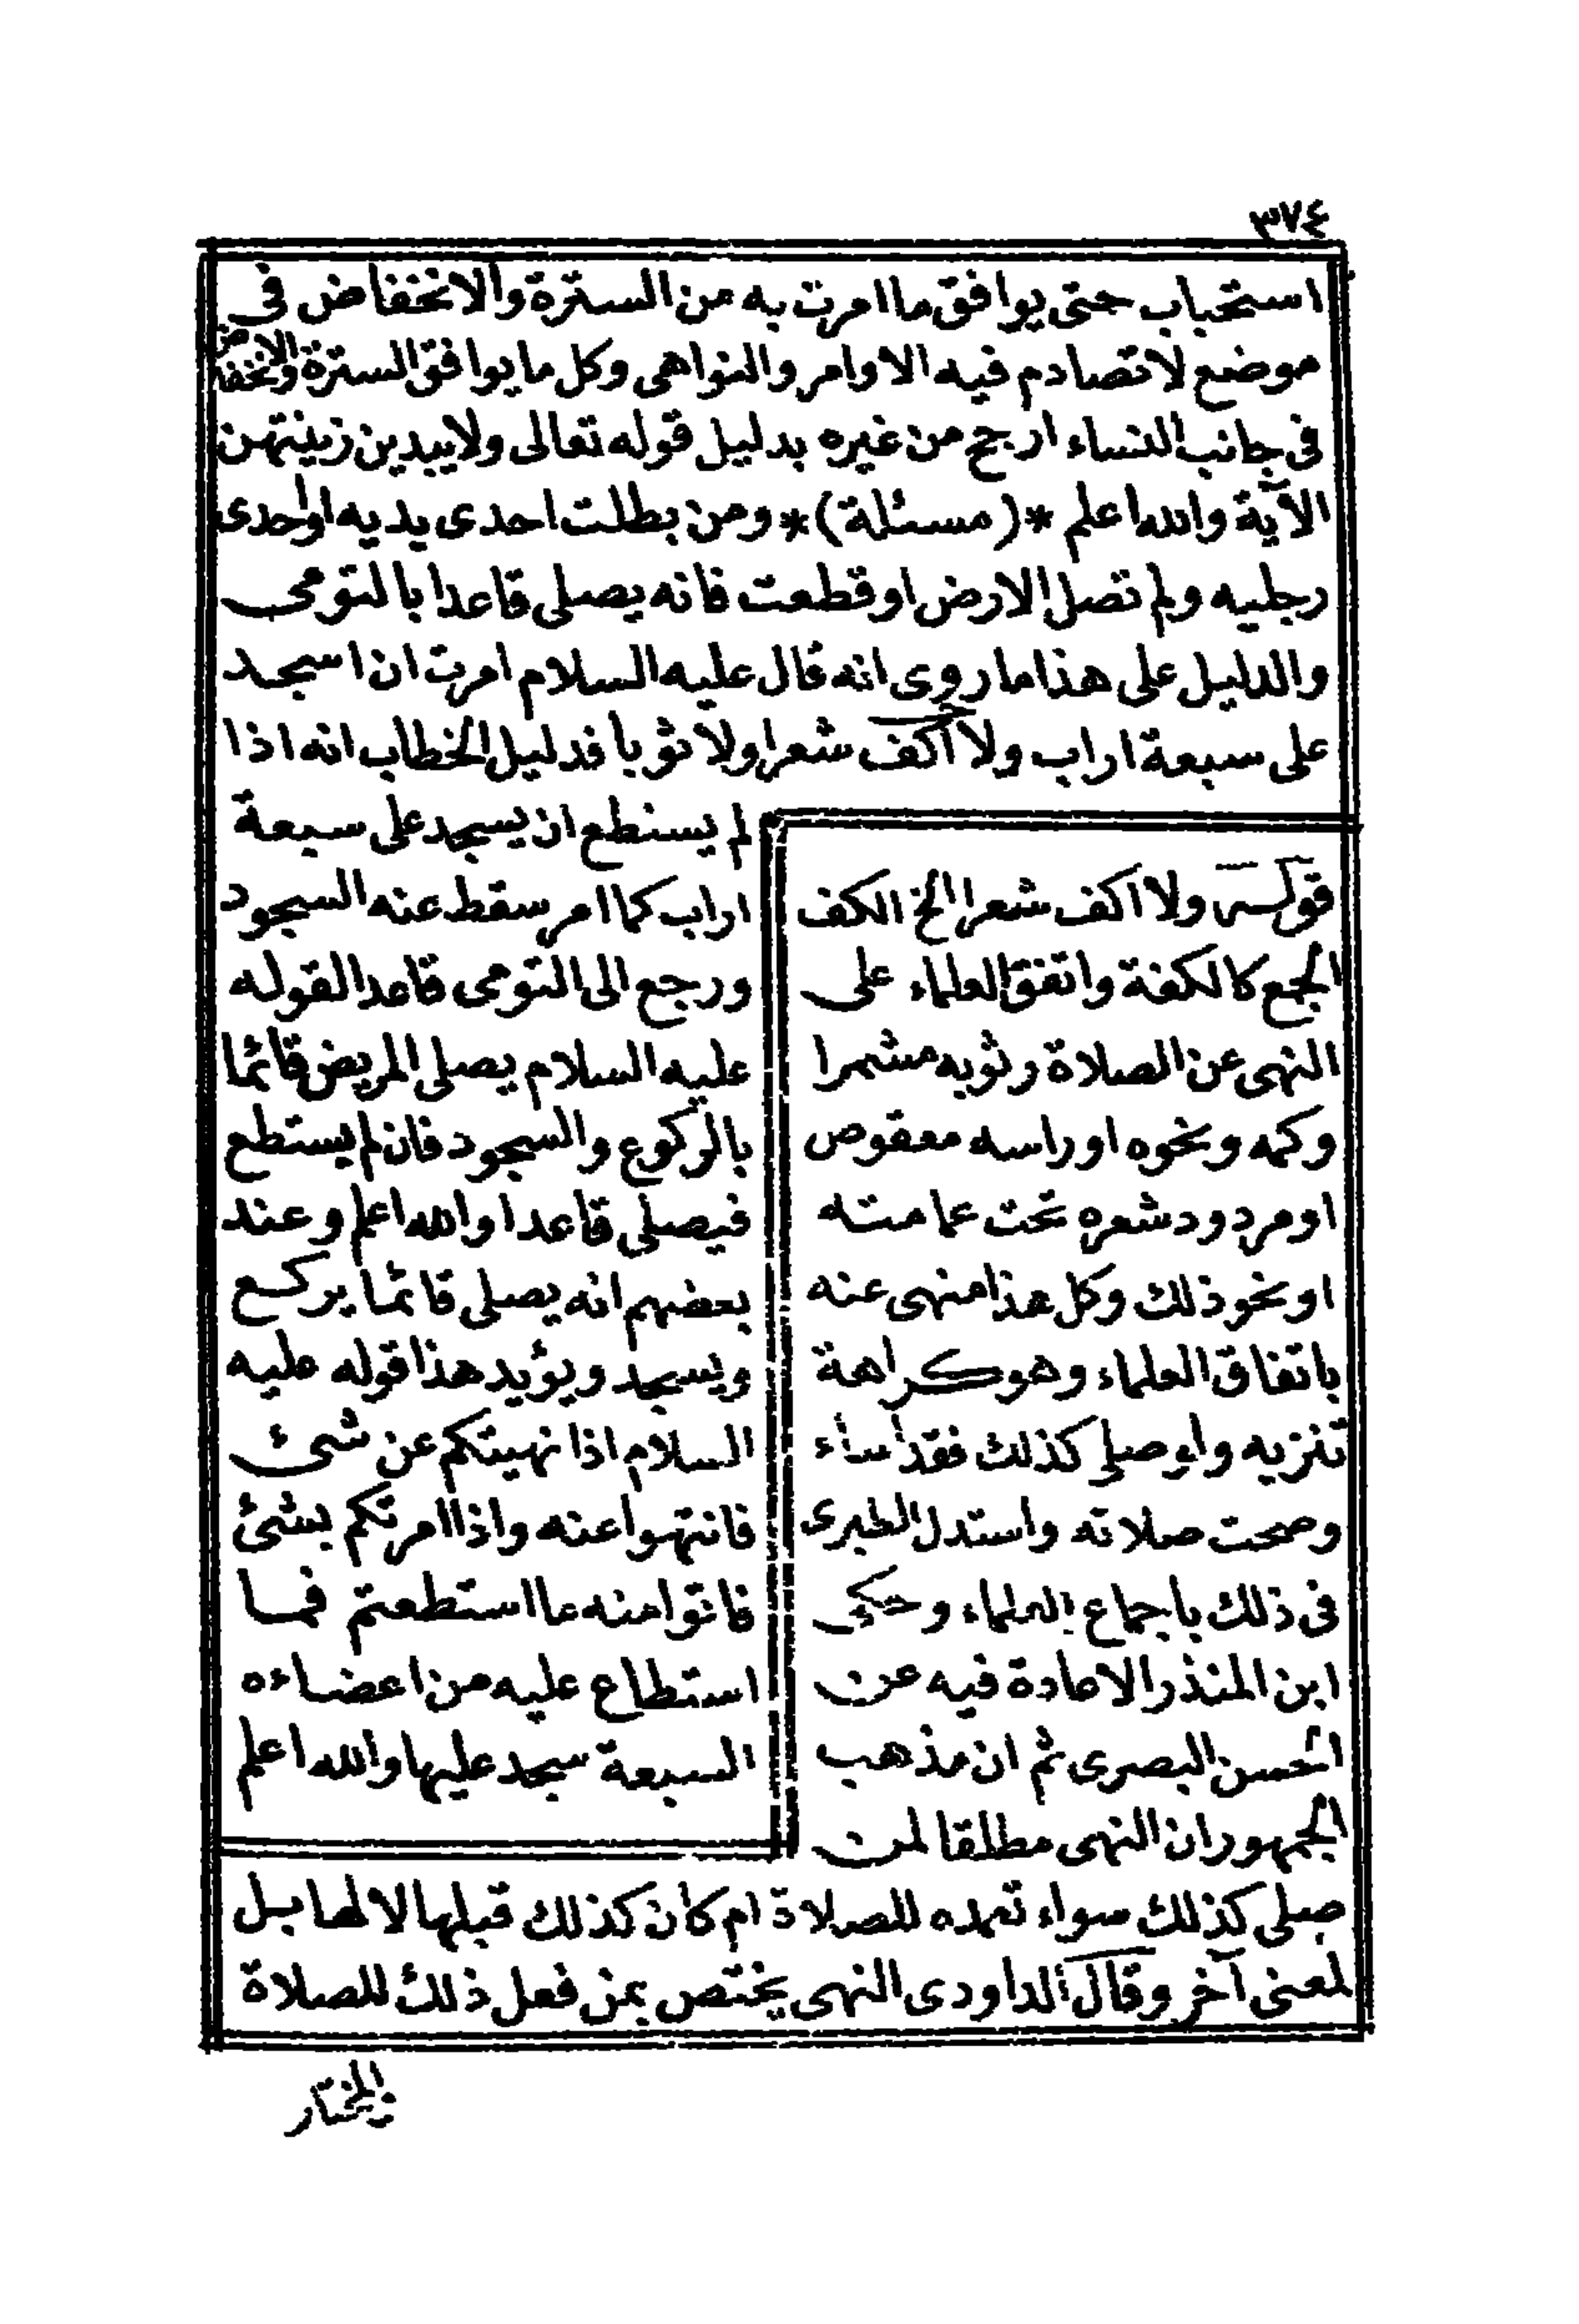 ٣٧٤
استحباب حتى يوافق ما امرت به من السترة والانخفاض فى
موضع لا تصادم فيه الاوامر والنواهى وكل ما يوافق السترة والانخفاض
فى جانب النساء ارجح من غيره بدليل قوله تعالى ولا يبدين زينتهن
الآية والله اعلم *(مسئلة)* ومن بطلت احدى يديه او احدى
رجليه ولم تصل الارض او قطعت فانه يصلى قاعدا بالتومى
والدليل على هذا ما روى انه قال عليه السلام امرت ان اسجد
على سبعة اراب ولا اكف شعرا ولا ثوبا فدليل الخطاب انه اذا
لم يستطع ان يسجد على سبعة
اراب كما امر سقط عنه السجود
ورجع الى التومى قاعدا لقوله
عليه السلام يصلى المريض قائما
بالركوع والسجود فان لم يستطع
فيصلى قاعدا والله اعلم وعند
بعضهم انه يصلى قائما يركع
ويسجد ويؤيد هذا قوله عليه
السلام اذا نهيتكم عن شئ
فانتهوا عنه واذا امرتكم بشئ
فاتوا منه ما استطعتم فما
استطاع عليه من اعضاءه
السبعة سجد عليها والله اعلم
قوله ولا اكف شعرا الخ الكف
الجمع كالكفة واتفق العلماء على
النهى عن الصلاة وثوبه مشمرا
وكمه ونحوه او راسه معقوص
او مردود شعره تحت عمامته
او نحو ذلك وكل هذا منهى عنه
باتفاق العلماء وهو كراهة
تنزيه ولو صلى كذلك فقد اساء
وصحت صلاته واستدل الطبرى
فى ذلك باجماع العلماء وحكى
ابن المنذر الاعادة فيه عن
الحسن البصرى ثم ان مذهب
الجمهور ان النهى مطلقا لمن
صلى كذلك سواء تعمده للصلاة ام كان كذلك قبلها لا لها بل
لمعنى آخر وقال الداودى النهى يختص بمن فعل ذلك للصلاة
والمختار